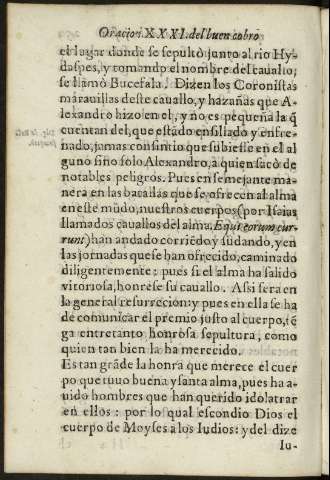 Oracion. XXXI. del buen cobro
el lugar donde se sepultò junto al rio Hy-
daspes, y tomando el nombre del cauallo,
se llamò Bucefala. Dizen los Coronistas
marauillas deste cauallo, y hazañas que A-
lexandro hizo en el, y no es pequeña la q̃
cuentan del, que estãdo ensillado y enfre-
nado, jamas consintio que subiesse en el al
guno sino solo Alexandro, a quien sacò de
notables peligros. Pues en semejante ma-
nera en las batallas que se ofrecen al alma
en este mũdo, nuestros cuerpos (por Isaias
llamados cauallos del alma, Equi eorum cur-
runt) han andado corriẽdo y sudando, y en
las jornadas que se han ofrecido, caminado
diligentemente: pues si el alma ha salido
vitoriosa, honrese su cauallo. Assi sera en
la general resurreciõ: y pues en ella se ha
de comunicar el premio justo al cuerpo, tẽ
ga entretanto honrosa sepultura, como
quien tan bien la ha merecido.
Es tan grãde la honra que merece el cuer
po que tuuo buena y santa alma, pues ha a-
uido hombres que han querido idolatrar
en ellos: por lo qual escondio Dios el
cuerpo de Moyses a los Iudios: y del dize
Iu-